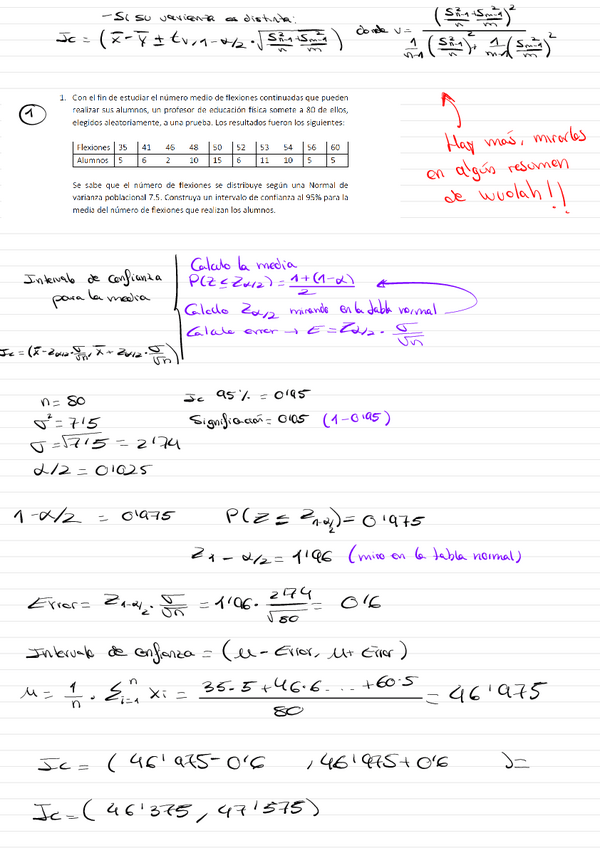 - Si su varianza es distinta:
Ic = (x̄ - ȳ ± t v, 1-α/2 · √(S²n-1/n + S²m-1/m)) donde v = (S²n-1/n + S²m-1/m)² / (1/(n-1) (S²n-1/n)² + 1/(m-1) (S²m-1/m)²)
1
1. Con el fin de estudiar el número medio de flexiones continuadas que pueden
realizar sus alumnos, un profesor de educación física somete a 80 de ellos,
elegidos aleatoriamente, a una prueba. Los resultados fueron los siguientes:
Flexiones 35 41 46 48 50 52 53 54 56 60
Alumnos 5 6 2 10 15 6 11 10 5 5
Se sabe que el número de flexiones se distribuye según una Normal de
varianza poblacional 7.5. Construya un intervalo de confianza al 95% para la
media del número de flexiones que realizan los alumnos.
Hay más, mirarlos
en algún resumen
de wuolah!!
Intervalo de confianza
para la media
Calculo la media
P(Z ≤ Zα/2) = 1+(1-α)/2
Calculo Zα/2 mirando en la tabla normal
Calculo error → E = Zα/2 · σ/√n
Ic = (x̄ - zα/2 · σ/√n, x̄ + zα/2 · σ/√n)
n = 80 Ic 95% = 0'95
σ² = 7'5 Significación = 0'05 (1-0'95)
σ = √7'5 = 2'74
α/2 = 0'025
1-α/2 = 0'975 P(Z ≤ Z1-α/2) = 0'975
Z1-α/2 = 1'96 (miro en la tabla normal)
Error = Z1-α/2 · σ/√n = 1'96 · 2'74/√80 = 0'6
Intervalo de confianza = (μ - Error, μ + Error)
μ = 1/n · Σ i=1 n xi = 35·5+46·6 ... +60·5 / 80 = 46'975
Ic = (46'975-0'6 , 46'975+0'6 ) =
Ic = (46'375, 47'575)